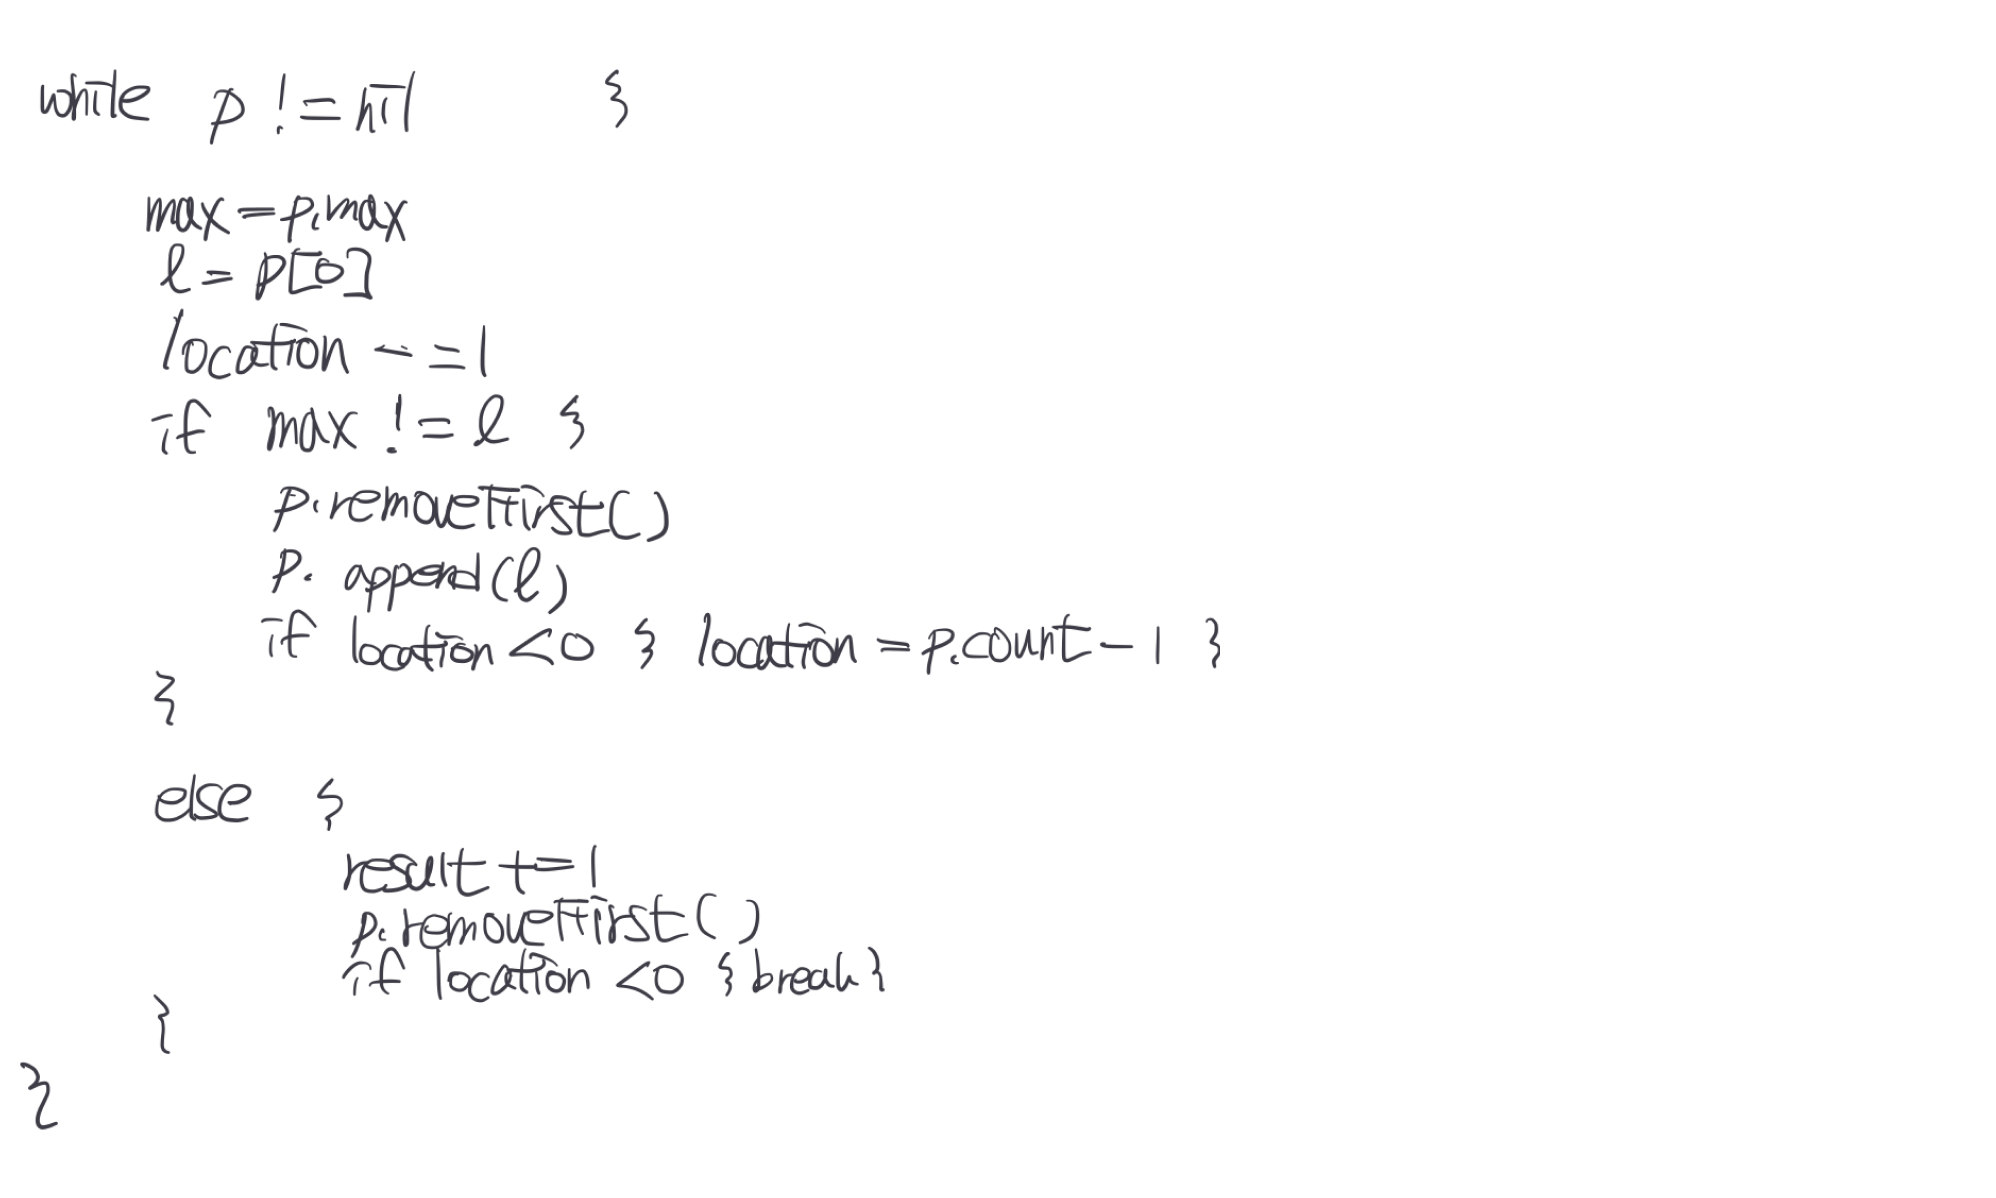 while p != nil {
max = p.max
l = p[0]
location -= 1
if max != l {
p.removeFirst()
p. append(l)
if location <0 { location = p.count - 1 }
}
else {
result += 1
p.removeFirst()
if location <0 { break }
}
}